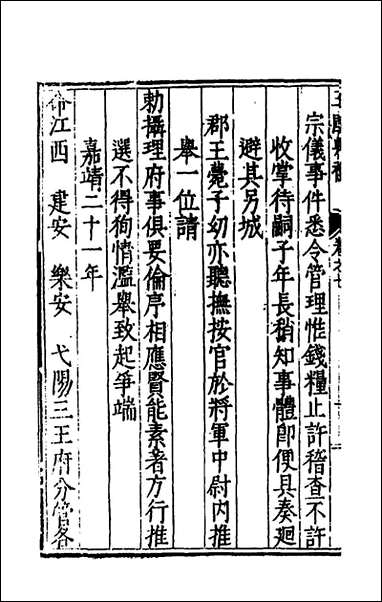 宗儀事件悉令管理惟錢糧止許稽查不許
收掌待嗣子年長稍知事體即便具奏廻
避其另城
郡王薨子幼亦聽撫按官於將軍中尉内推
舉一位請
勅攝理府事俱要倫序相應賢能素著方行推
選不得狥情濫舉致起爭端
嘉靖二十一年
命江西　建安　樂安　弋陽三王府分管各